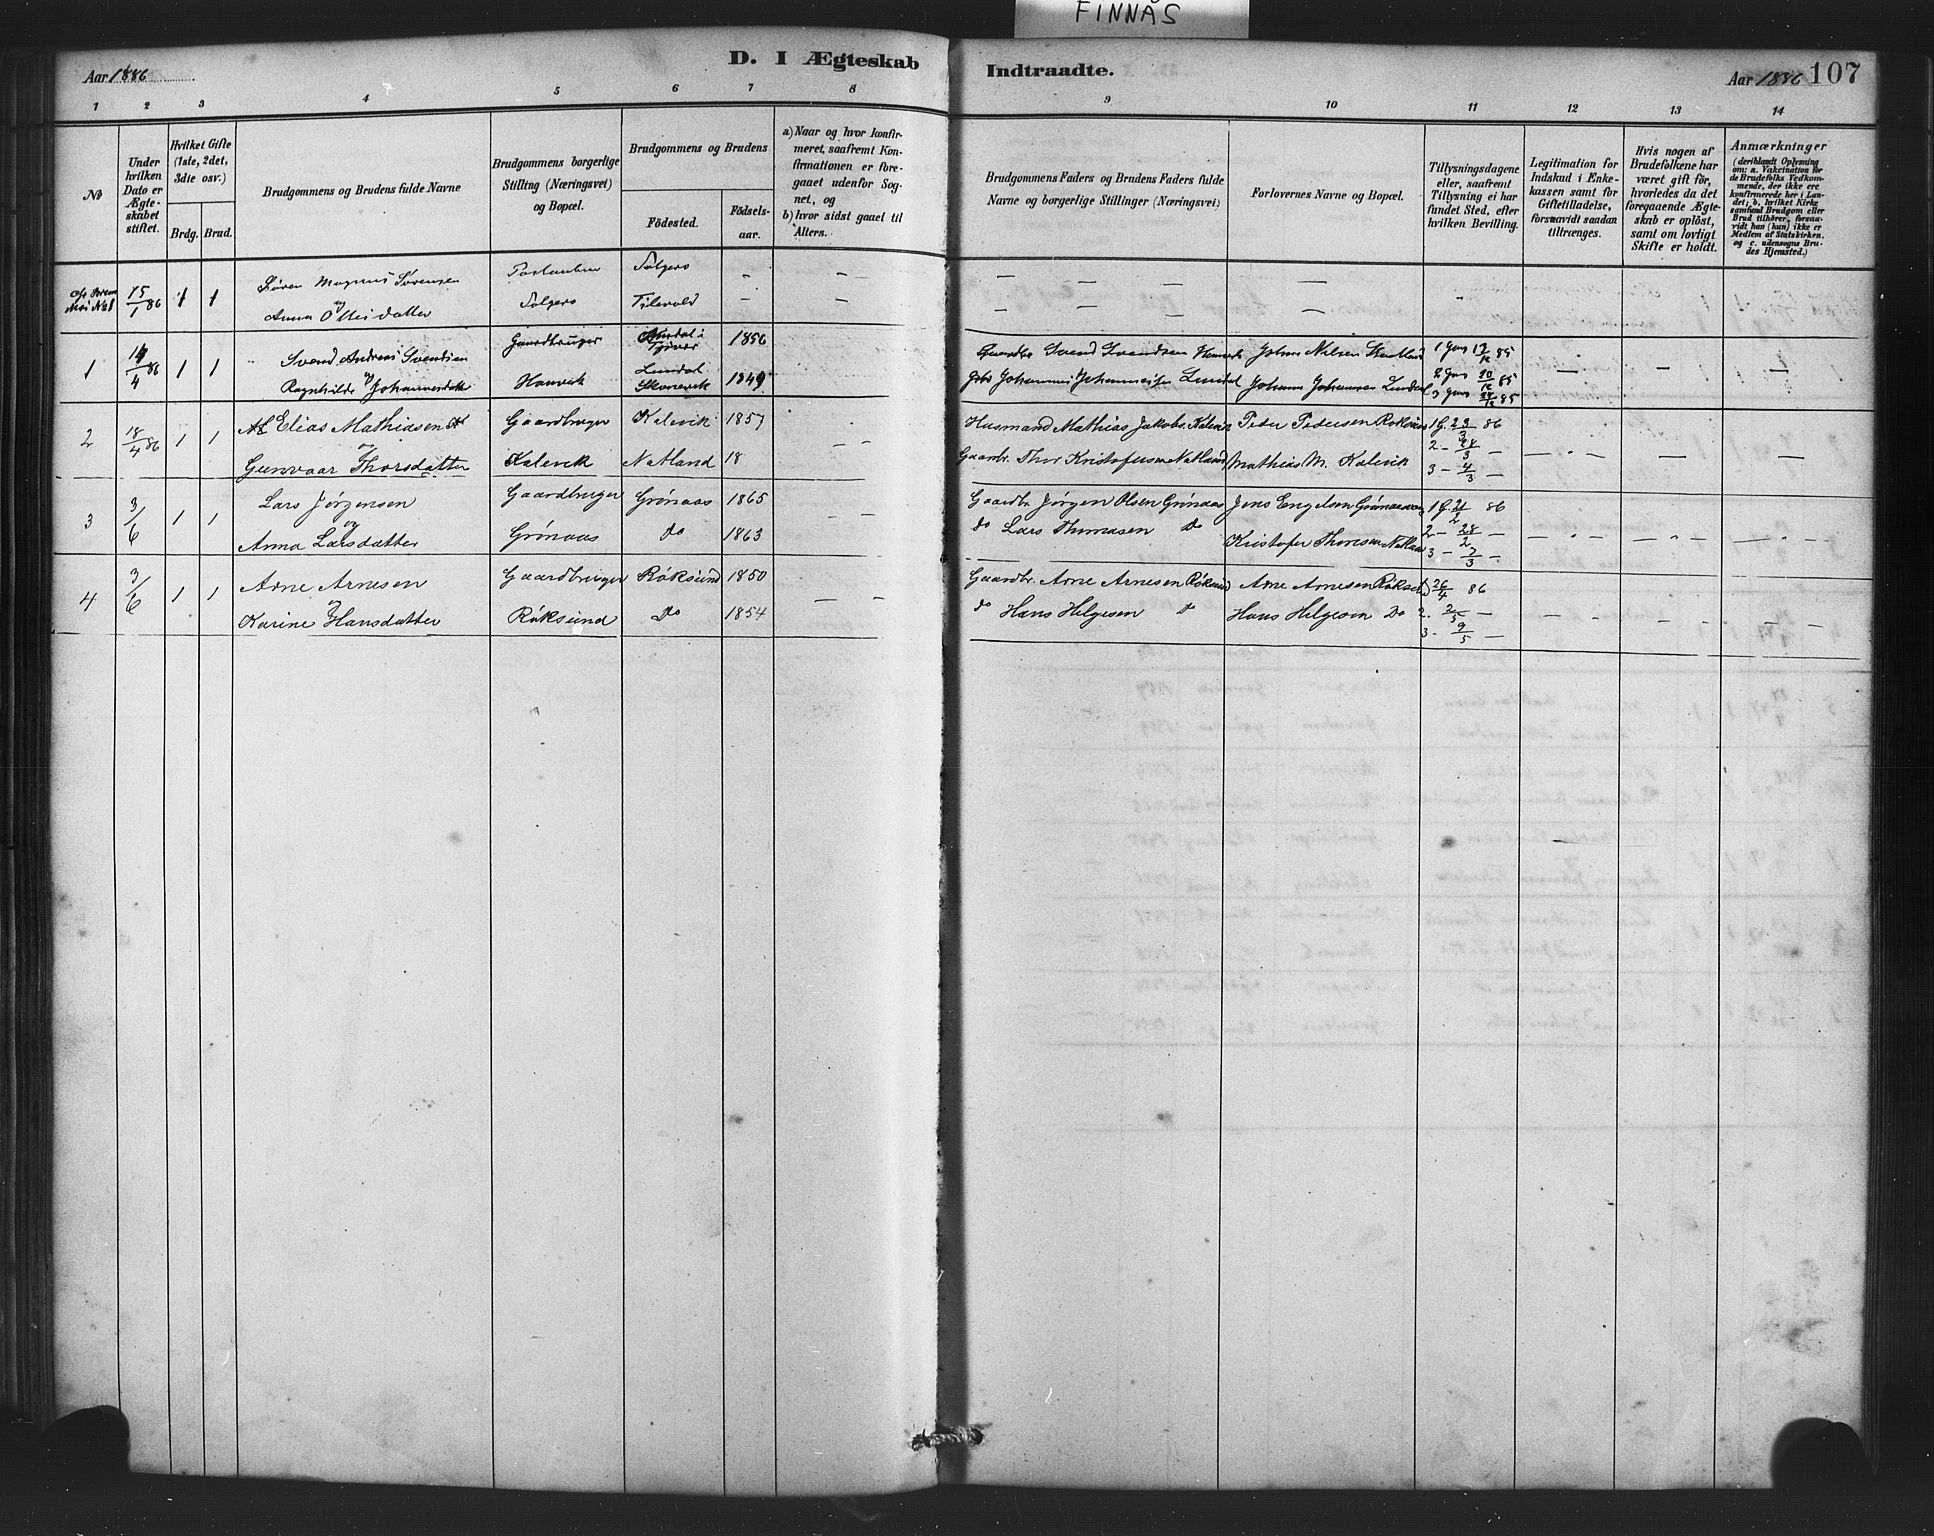 FINNÅS
Aar 1886
D. I Ægteskab
Indtraadte.
Aar 1886
107
1 2 3 4 5 6 7 8 9 10 11 12 13 14
No
Under hvilken Dato er Ægteskabet stiftet.
Hvilket Gifte (1ste, 2det, 3die osv.)
Brdg. Brud.
Brudgommens og Brudens fulde Navne
Brudgommens borgerlige Stilling (Næringsvei) og Bopæl.
Brudgommens og Brudens
Födested.
Födselsaar.
a) Naar og hvor konfirmeret, saafremt Konfirmationen er foregaaet udenfor Sognet, og
b) hvor sidst gaaet til Alters.
Brudgommens Faders og Brudens Faders fulde Navne og borgerlige Stillinger (Næringsvei)
Forlovernes Navne og Bopæl.
Tillysningsdagene eller, saafremt Tillysning ei har fundet Sted, efter hvilken Bevilling.
Legitimation for Indskud i Enkekassen samt for Giftetilladelse, forsaavidt saadan tiltrænges.
Hvis nogen af Brudefolkene har været gift för, hvorledes da det foregaaende Ægteskab er oplöst, samt om lovligt Skifte er holdt.
Anmærkninger
(deriblandt Oplysning om: a. Vakcination for de Brudefolks Vedkommende, der ikke ere konfirmerede her i Landet; b. hvilket Kirkesamfund Brudgom eller Brud tilhörer, forsaavidt han (hun) ikke er Medlem af Statskirken, og c. udensogns Brudes Hjemsted.)
15/1 86 1 1 Sören Magnus Sörensen
og
Anna Ottesdatter
1 14/4 86 1 1 Svend Andreas Svendsen Gaardbruger 1856 Svend Svendsen Johns Nilsen 1 Gang 13/12 85
og
Ragnhilde Johannesdatter Lundal Skonevik 1849 Johannes Johannesen Lundal Johannes Johannesen Lundal 2 Gang 20/12 85
3 Gang 85
2 18/4 86 1 1 Elias Mathiasen Gaardbruger Kalevik 1857 Husmand Mathias Jakobs. Kalevik Peder Pedersen 1 G. 86
og
Gunvaar Thorsdatter Kalevik Natland 18 Gaardbr. Thor Kristofersen Natland Mathias M. Kalevik 2 - 28/3 -
3 - 4/3 -
3 3/6 1 1 Lars Jørgensen Gaardbruger Grønaas 1865 Gaardbr. Jørgen Olsen Grønaas Jens Engelsen 1 G. 21/2 86
og
Anna Larsdatter Grønaas Do 1863 do Lars Thomasen Do Kristofer Thorsen 2 - 28/2 -
3 - 7/3 -
4 3/6 1 1 Arne Arnesen Gaardbruger Røksund 1850 Gaardbr. Arne Arnesen Røksund Arne Arnesen Røksund 26/4 86
og
Karine Hansdatter Røksund Do 1854 do Hans Helgesen Do Hans Helgesen Do 2. 2/5 -
3 - 9/5 -